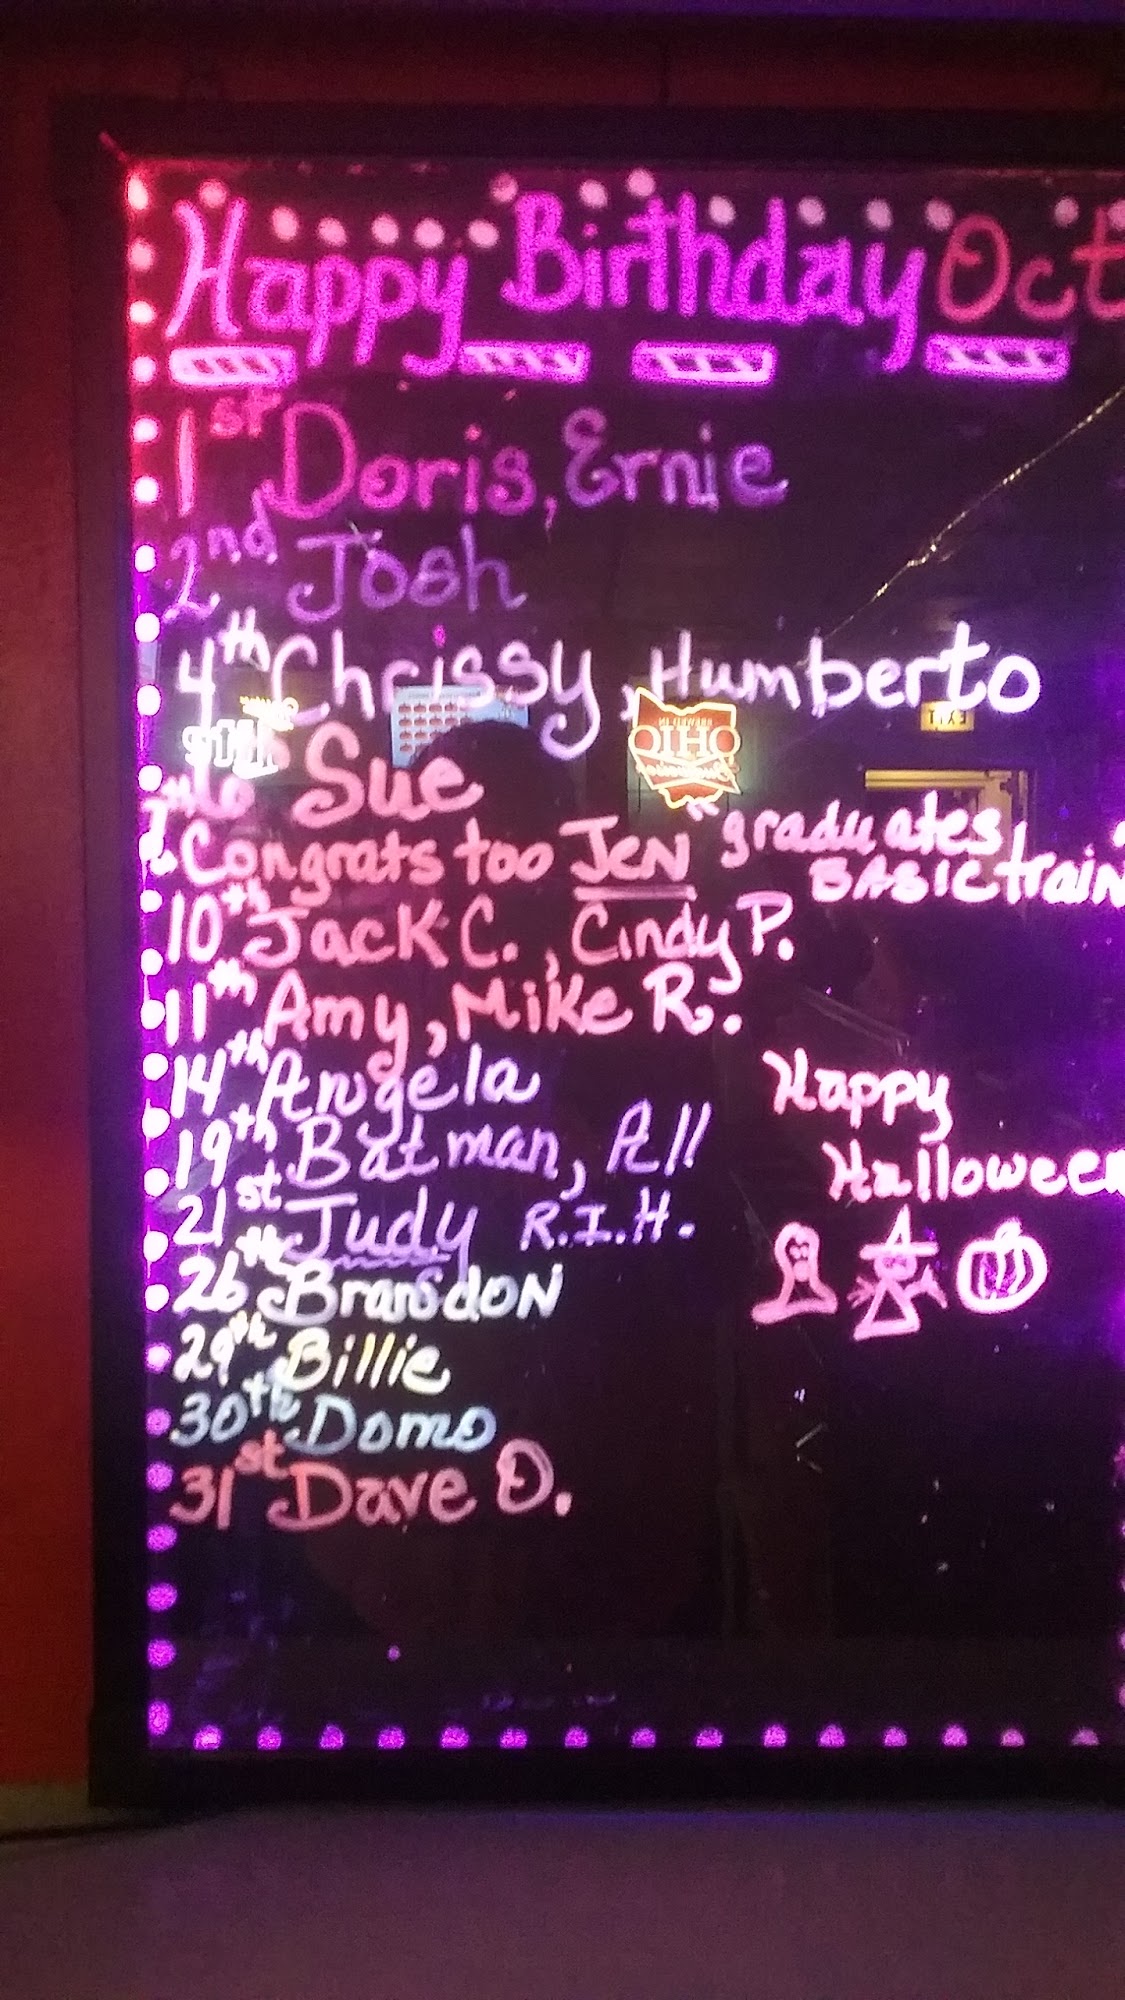 Happy Birthday Oct
1st Doris, Ernie
2nd Josh
4th Chrissy, Humberto
6th Sue
Congrats too JEN "graduates,
BASIC train
10th Jack C., Cindy P.
11th Amy, Mike R.
14th Angela
19th Batman, All
21st Judy R.I.H.
26th Brandon
29th Billie
30th Domo
31st Dave O.
Happy
Halloween
OHIO
EXIT